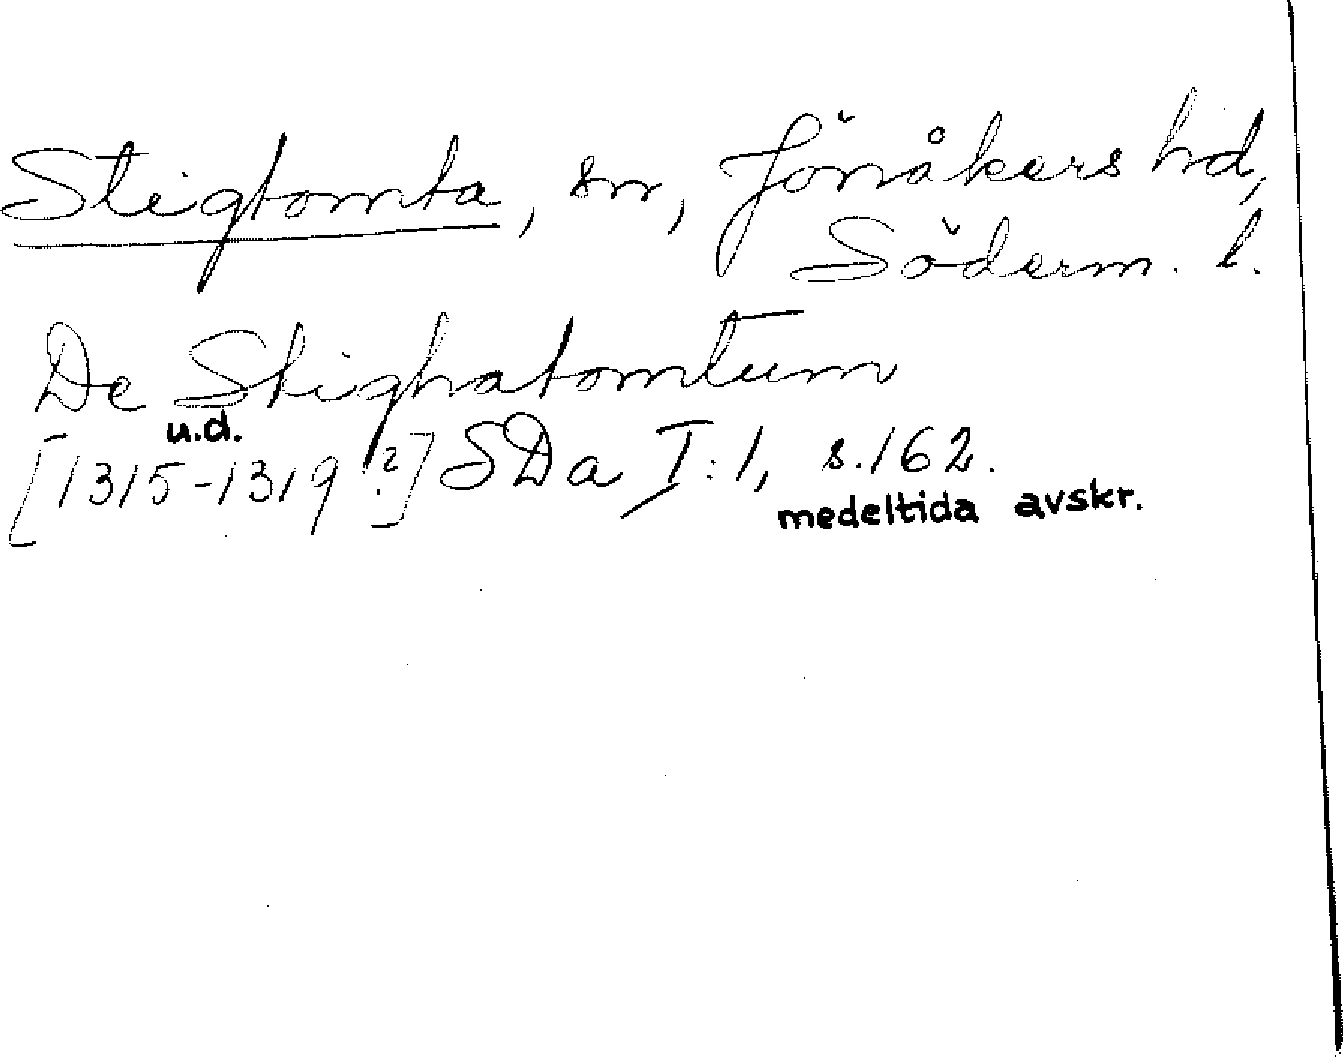 Stigtomta, sn, Jönåkers hd,
Söderm. l.
De Stighatomtum
u.d.
[1315-1319?] SDa I:1, s.162.
medeltida avskr.